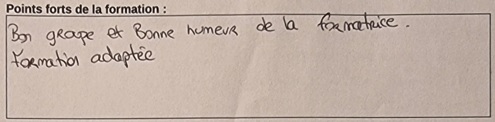 Points forts de la formation :
Bon grape et Bonne humeur de la formatrice.
Formation adaptée